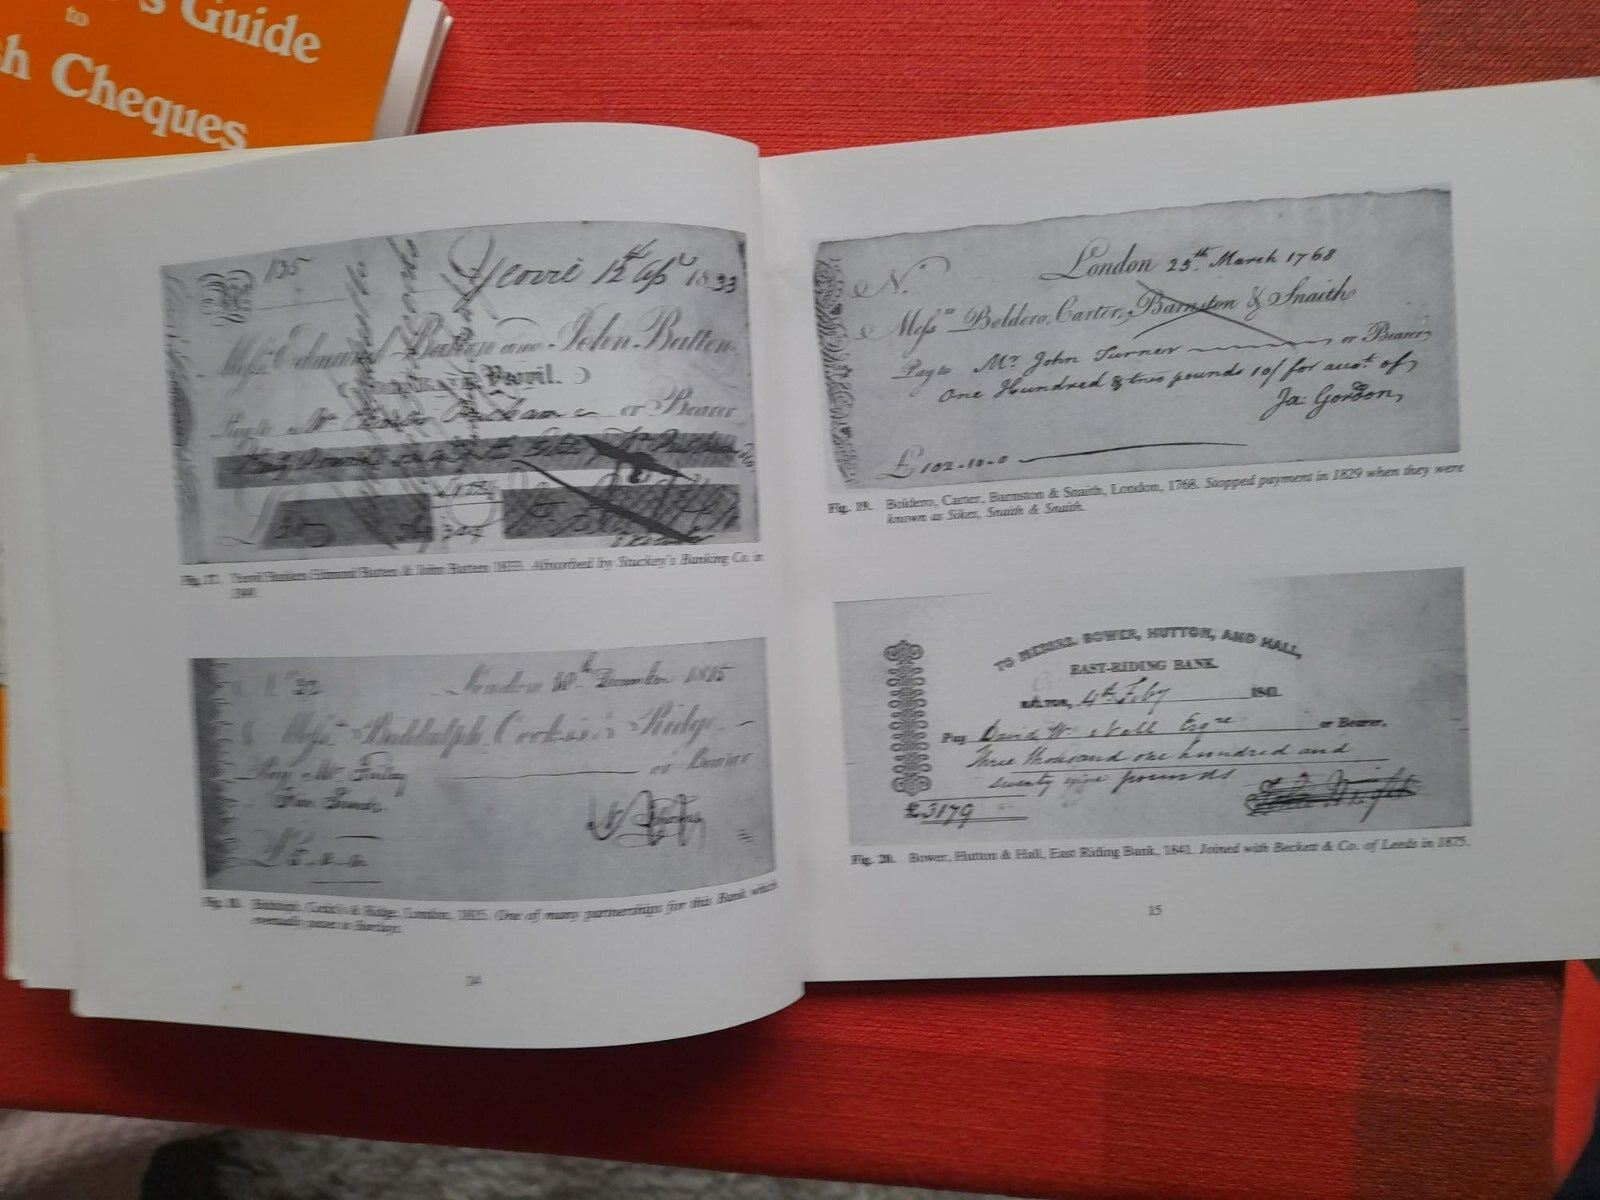 s Guide
to
h Cheques
135
12th 1833
Messrs Edmund Batten and John Batten
Yeovil.
Pay to Mr or Bearer
Fig. 17. Yeovil Bankers Edmund Batten & John Batten 1833. Absorbed by Stuckey's Banking Co. in
London 10th December 1815
Messrs Biddulph Cocks & Ridge
Pay Mr or Bearer
Five Pounds
£5
Fig. 18. Biddulph, Cocks & Ridge, London, 1815. One of many partnerships for this Bank which
eventually passes to Barclays.
14
London 25th March 1768
No.
Messrs Boldero, Carter, Barnston & Snaith
Pay to Mr John Turner or Bearer
One Hundred & two pounds 10/ for acct. of
Ja: Gordon
£102-10-0
Fig. 19. Boldero, Carter, Barnston & Snaith, London, 1768. Stopped payment in 1829 when they were
known as Sikes, Snaith & Snaith.
TO MESSRS. BOWER, HUTTON, AND HALL,
EAST-RIDING BANK.
4th Feby 1841.
Pay David W. Nell Esqre or Bearer.
Three thousand one hundred and
seventy nine pounds
£3179
Fig. 20. Bower, Hutton & Hall, East Riding Bank, 1841. Joined with Beckett & Co. of Leeds in 1875.
15